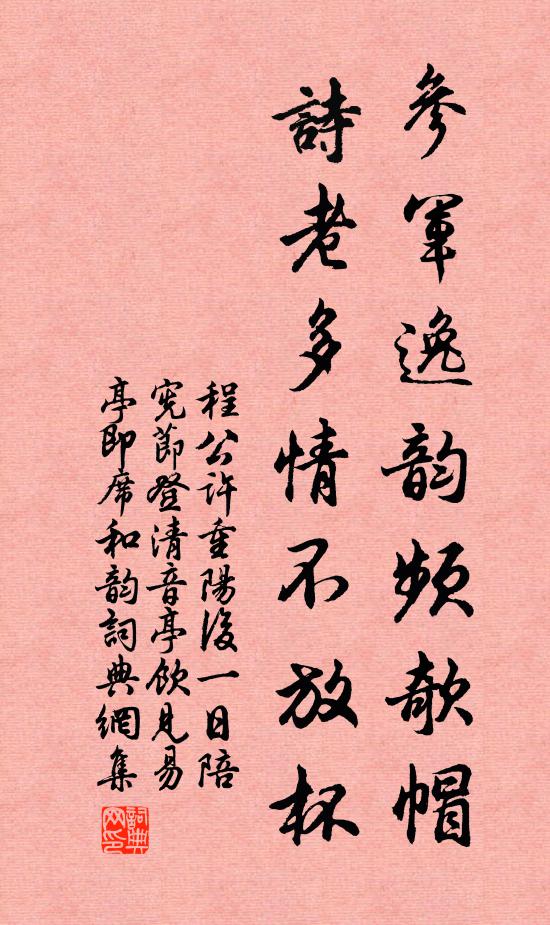 參軍逸韵頻欹帽
詩老多情不放杯
程公許重陽後一日陪
宪節登清音亭飲見易
亭即席和韵詞典網集
詞典网印